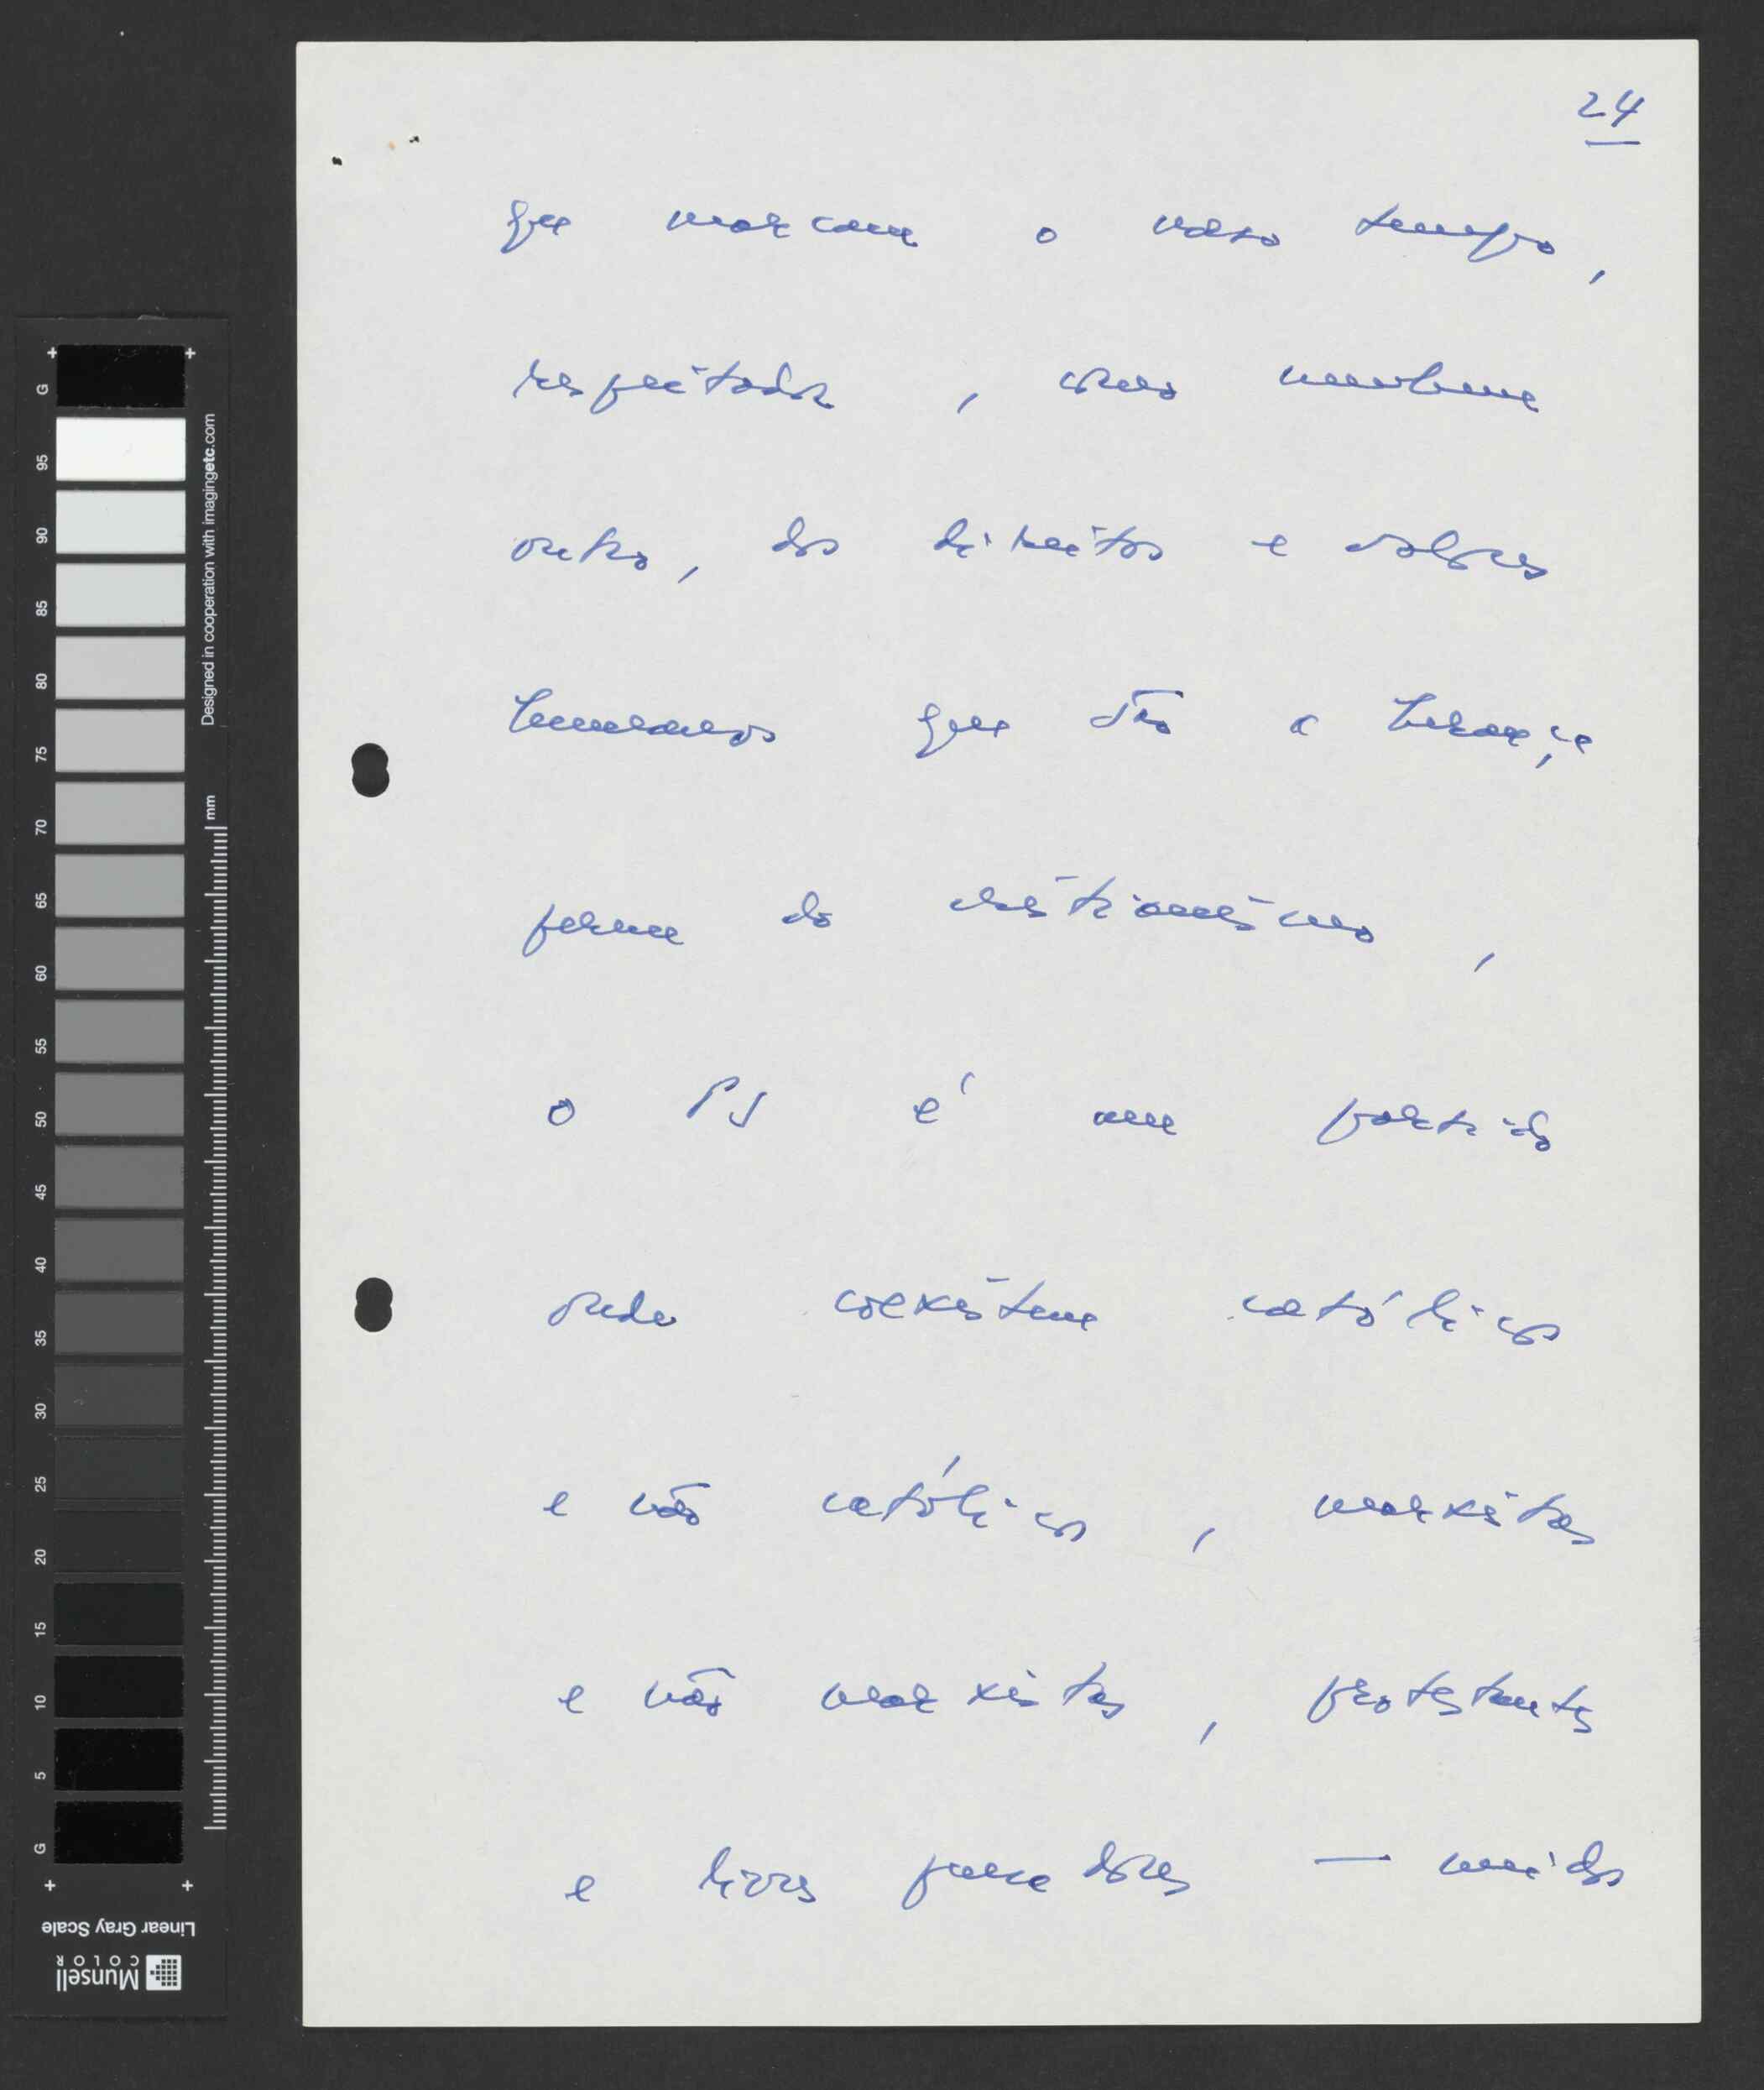 24
que marcam o nosso tempo,
respeitador, como nenhum
outro, dos direitos e valores
humanos que são a herança
perene do cristianismo,
o PS é um partido
onde coexistem católicos
e não católicos, marxistas
e não marxistas, protestantes
e livres pensadores — unidos
G
95
90
85
80
75
70
65
60
55
50
45
40
35
30
25
20
15
10
5
G
Designed in cooperation with imagingetc.com
mm
Linear Gray Scale
Munsell
COLOR